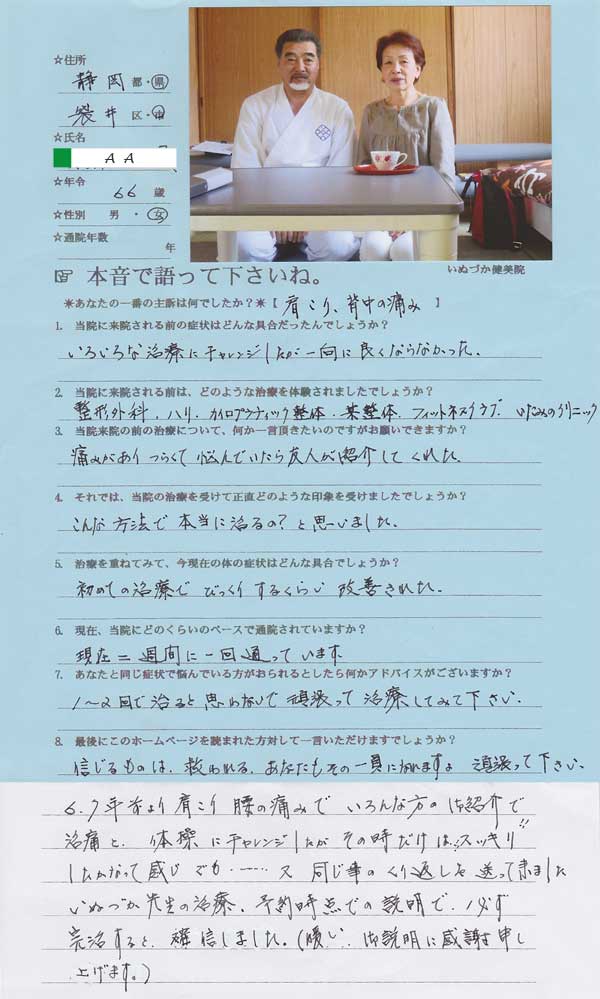 ☆住所
静岡 都・県
袋井 区・市
☆氏名
A A
☆年令
66 歳
☆性別 男・女
☆通院年数
年
いぬづか健美院
☞ 本音で語って下さいね。
＊あなたの一番の主訴は何でしたか？＊【 肩こり、背中の痛み 】
1. 当院に来院される前の症状はどんな具合だったんでしょうか？
いろいろな治療にチャレンジしたが一向に良くならなかった。
2. 当院に来院される前は、どのような治療を体験されましたでしょうか？
整形外科・ハリ・カイロプラティック整体・某整体・フィットネスクラブ・いたみのクリニック
3. 当院来院の前の治療について、何か一言頂きたいのですがお願いできますか？
痛みがありつらくて悩んでいたら友人が紹介してくれた。
4. それでは、当院の治療を受けて正直どのような印象を受けましたでしょうか？
こんな方法で本当に治るの？と思いました。
5. 治療を重ねてみて、今現在の体の症状はどんな具合でしょうか？
初めての治療でびっくりするくらい改善された。
6. 現在、当院にどのくらいのペースで通院されていますか？
現在二週間に一回通っています
7. あなたと同じ症状で悩んでいる方がおられるとしたら何かアドバイスがございますか？
1～2回で治ると思わないで頑張って治療してみて下さい。
8. 最後にこのホームページを読まれた方対して一言いただけますでしょうか？
信じるものは、救われる、あなたもその一員になれますよ 頑張って下さい。
6.7年前より肩こり腰の痛みでいろんな方の御紹介で
治痛と、体操にチャレンジしたがその時だけは"スッキリ"
したかなって感じでも……又同じ事のくり返しを送って来ました
いぬづか先生の治療、予約時点での説明で、必ず
完治すると、確信しました。(暖い、御説明に感謝申し
上げます。)